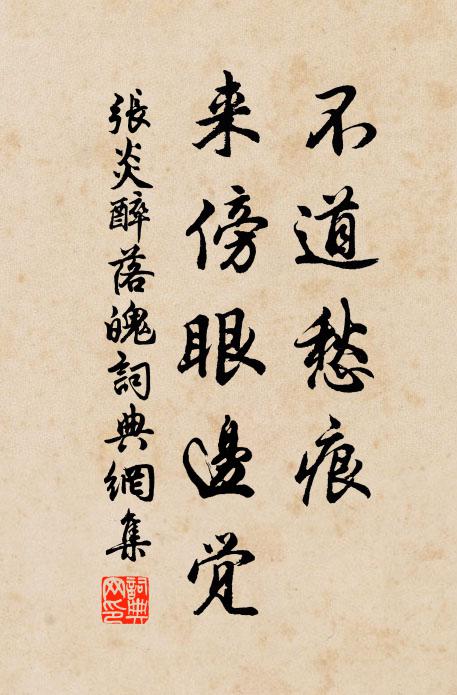 不道愁痕
来傍眼邊觉
張炎醉落魄詞典網集
詞典网印